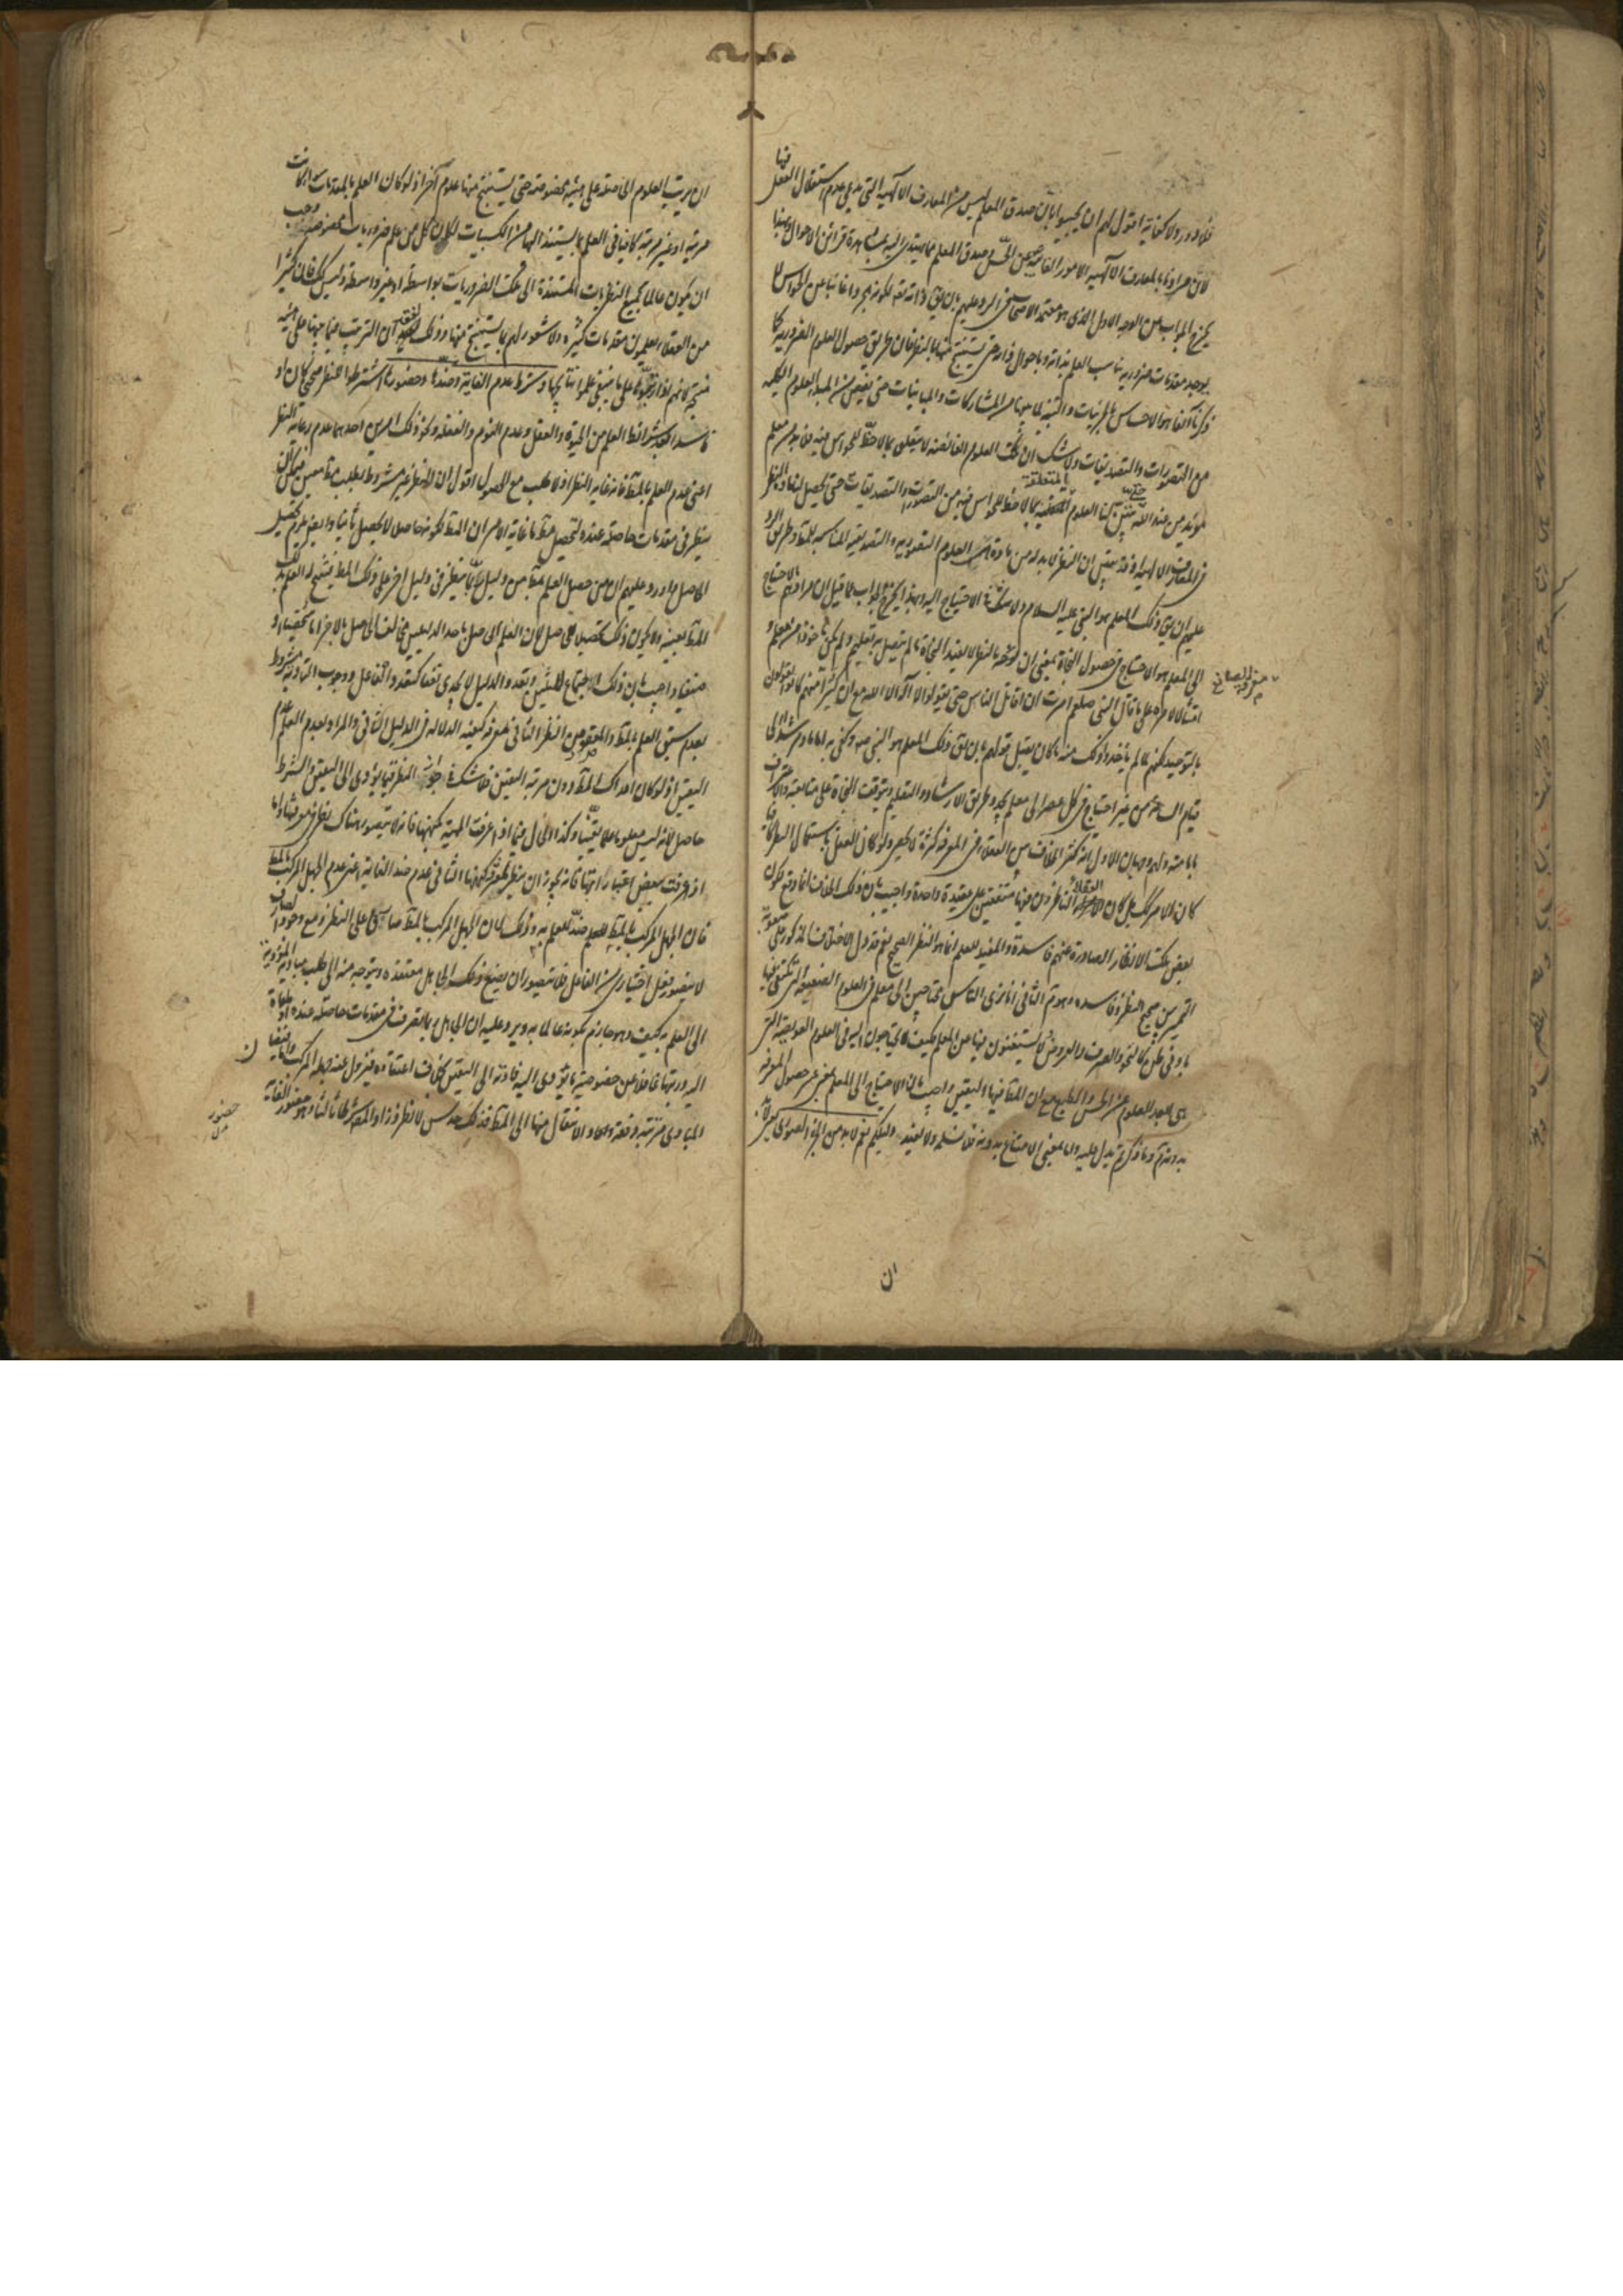 فلا دور ولا كفاية اقول لهم ان يجيبوا بان صدق المعلم ليس من المعارف الالهية التي يدعى عدم استقلال العقل فيها
لان مرادنا بالمعارف الالهية الامور الغائبة عن الحس وصدق المعلم مما يهتدى اليه بمشاهدة قرائن الاحوال
يخرج الجواب عن الوجه الاول الذي هو معتمد الاصحاب في الرد عليهم بان يق ذاته تعه لكونه مجردا غائبا عن الحواس لا
يوجد مقدمات ضرورية تناسب العلم بذاته وباحوال ذاته حتى يستنتج منها بالنظر فان طريق حصول العلوم الضرورية كما
ذكرنا آنفا هو الاحساس بالجزئيات والتنبه لما بينها من المشاركات والمباينات حتى يفيض من المبدء العلوم الكلية
من التصورات والتصديقات ولا شك ان تلك العلوم الفائضة لا يتعلق بما لا حظ للحواس فيه فلا بد من معلم
مؤيد من عند الله حتى يتبين لنا العلوم المتعلقة بما لا حظ للحواس فيه من التصورات والتصديقات حتى يحصل لنا مادة النظر
في المعارف الالهية وقد تبين ان النظر لا بد له من مادة هي العلوم التصورية والتصديقية المناسبة للمط وطريق الرد
عليهم ان يق ذلك المعلم هو النبي عليه السلام ولا شك في الاحتياج اليه وبهذا يخرج الجواب عما قيل ان مرادهم بالاحتياج
الى المعلم هو الاحتياج في حصول النجاة بمعنى ان معرفة الصانع بالنظر لا يفيد النجاة ما لم يتصل به تعليم ولم يكن مأخوذا من معلم و
امتثالا لامره على ما قال النبي صلعم امرت ان اقاتل الناس حتى يقولوا لا اله الا الله مع ان كثيرا منهم كانوا يقولون
بالتوحيد لكنهم لما لم يأخذوا ذلك منه ما كان يقبل قولهم بان يق ذلك المعلم هو النبي صه وكفى به اماما ومرشدا الى
قيام الساعة من غير احتياج في كل عصر الى معلم يجدد طريق الارشاد والتعليم ويتوقف النجاة على متابعته والاعتراف
بامامته ولهم وجهان الاول انه كثر الخلاف بين العقلاء في المعرفة كثرة لا تحصى ولو كان العقل باستعمال النظر كافيا
لما كان الامر كذلك بل كان العقلاء الناظرون فيها متفقين على عقيدة واحدة واجيب بان ذلك الخلاف انما وقع لكون
بعض تلك الانظار الصادرة عنهم فاسدة والمفيد للعلم انما هو النظر الصحيح نعم قد دل الاختلاف المذكور على صعوبة
التمييز بين صحيح النظر وفاسده وهو مم الثاني انا نرى الناس محتاجين الى معلم في العلوم الضعيفة التي تكتفي فيها
بادنى ظن كالنحو والصرف والعروض لا يستغنون فيها عن المعلم فكيف لا يحتاجون اليه في العلوم العويصة التي
هي ابعد العلوم عن الحس والطبع مع ان المط فيها اليقين واجيب بان الاحتياج الى المعلم بمعنى عسر حصول المعرفة
بدونه مم وما ذكرتم يدل عليه واما بمعنى الامتناع بدونه فلا نسلمه ولا يفيده دليلكم نعم لا بد من الجزء الصوري
معرفة الصانع
ان
ان يرتب العلوم الحاصلة على هيئة مخصوصة حتى يستنتج منها علوم اخر اذ لو كان العلم بالمقدمات سواء كانت
مرتبة او غير مرتبة كافيا في العلم بما يستند اليها من الكسبيات لكان كل من علم ضروريات مخصوصة وجب
ان يكون عالما بجميع النظريات المستندة الى تلك الضروريات بواسطة او بغير واسطة وليس كك فان كثيرا
من العقلاء يعلمون مقدمات كثيرة ولا شعور لهم بما يستنتج منها وذلك لفقد الترتيب فيما بينها على هيئة
منتجة فانهم اذا رتبوها على ما ينبغي علموا نتايجها وشرط عدم الغاية وضدها وحضورها اشترطوا للنظر صحيحا كان او
فاسدا بعد شرائط العلم من الحيوة والعقل وعدم النوم والغفلة ونحو ذلك امرين احدهما عدم غاية النظر
اعني عدم العلم بالمط فانه غاية النظر اذ لا طلب مع الحصول اقول ان النظر غير مشروط بطلب مط معين فيمكن ان
ينظر في مقدمات حاصلة عنده لتحصيل مط ما غاية الامر ان المط لكونه حاصلا لا يحصل ثانيا والا يلزم تحصيل
الحاصل واورد عليهم ان من حصل العلم بمط من دليل ربما ينظر في دليل آخر على ذلك المط فينتج له العلم بذلك
المط بعينه ولا يكون ذلك تحصيلا للحاصل لان العلم الحاصل باحد الدليلين مخالف للحاصل بالآخر اما شخصا او
صنفا واجيب بان ذلك لاجتماع المثلين وتعدد الدليل لا يجدي نفعا كتعدد الفاعل ووجوب التوارد مشروط
بعدم سبق العلم بالمط والمقصود من النظر الثاني هو معرفة كيفية الدلالة في الدليل الثاني والمراد بعدم العلم عدم
اليقين اذ لو كان ادراك المط دون مرتبة اليقين فلا شك في جواز النظر فيما يؤدي الى اليقين والشرط
حاصل لانه ليس معلوما علما يقينيا وكذا الحال فيما اذا عرفت المهية بكنهها فانه لا يتصور هناك نظر في معرفتها واما
اذا عرفت ببعض اعتباراتها فانه يجوز ان ينظر لمعرفة كنهها الثاني عدم ضد الغاية اعني عدم الجهل المركب بالمط
فان الجهل المركب بالمط ضد للعلم به وذلك لان الجهل المركب بالمط صارف على النظر ومع وجود الصارف
لا يتصور فعل اختياري من الفاعل فلا يتصور ان يضيع ذلك الجاهل معتقده ويتوجه منه الى طلب مباد مؤدية
الى العلم به كيف وهو جازم بكونه عالما به ويرد عليه ان الجاهل ربما يتصرف في مقدمات حاصلة عنده او ملقاة
اليه ورتبها غافلا عن خصوصية ما يؤدي اليه فادته الى اليقين بخلاف اعتقاده فيزول عنه جهله المركب واما فيضان
المبادي مترتبة دفعة واحدة والانتقال منها الى المط فذلك حدس لا نظر وزاد المصـ شرطا ثالثا وهو حضور الغاية
حضور